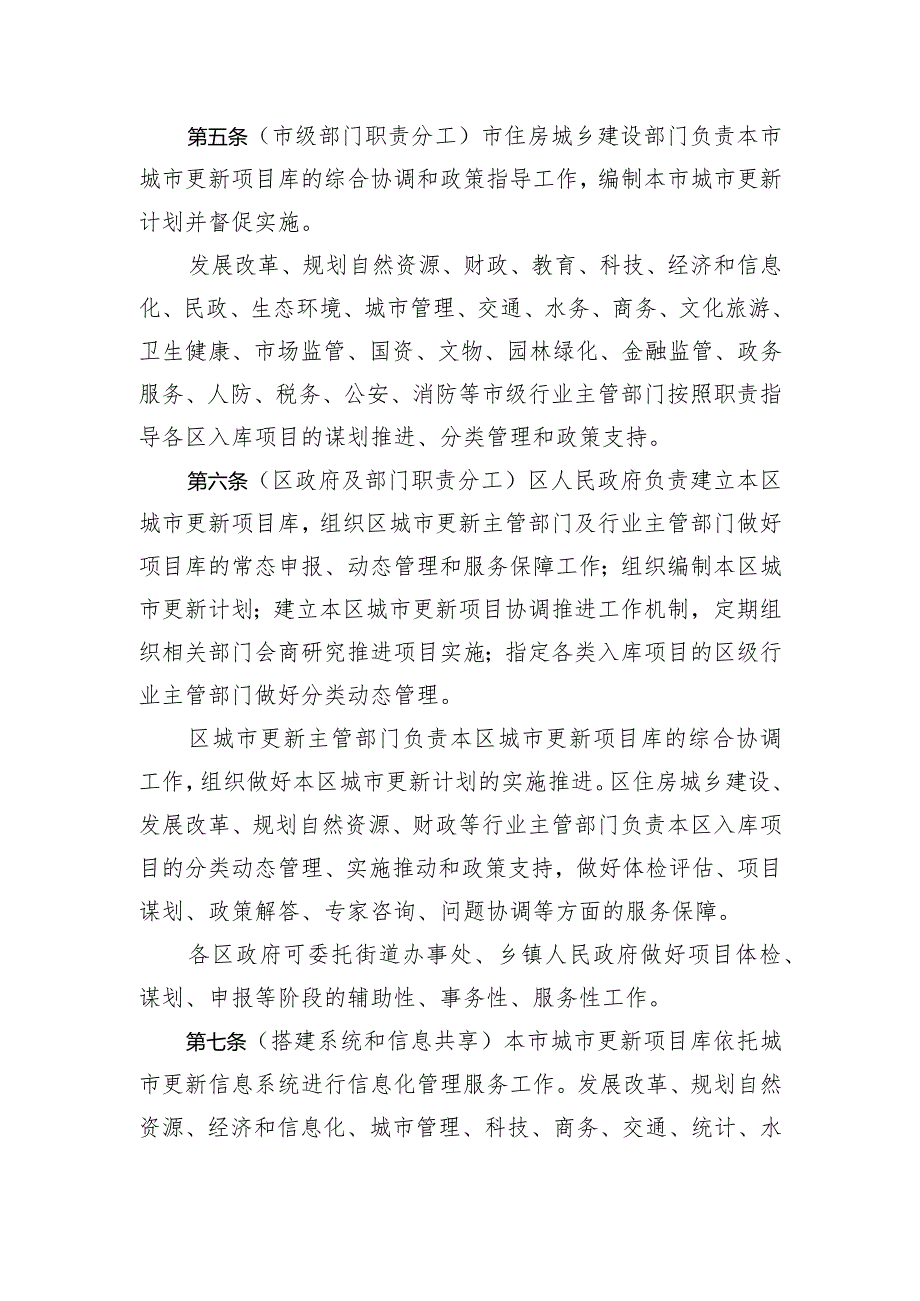 第五条（市级部门职责分工）市住房城乡建设部门负责本市
城市更新项目库的综合协调和政策指导工作，编制本市城市更新
计划并督促实施。
发展改革、规划自然资源、财政、教育、科技、经济和信息
化、民政、生态环境、城市管理、交通、水务、商务、文化旅游、
卫生健康、市场监管、国资、文物、园林绿化、金融监管、政务
服务、人防、税务、公安、消防等市级行业主管部门按照职责指
导各区入库项目的谋划推进、分类管理和政策支持。
第六条（区政府及部门职责分工）区人民政府负责建立本区
城市更新项目库，组织区城市更新主管部门及行业主管部门做好
项目库的常态申报、动态管理和服务保障工作；组织编制本区城
市更新计划；建立本区城市更新项目协调推进工作机制，定期组
织相关部门会商研究推进项目实施；指定各类入库项目的区级行
业主管部门做好分类动态管理。
区城市更新主管部门负责本区城市更新项目库的综合协调
工作，组织做好本区城市更新计划的实施推进。区住房城乡建设、
发展改革、规划自然资源、财政等行业主管部门负责本区入库项
目的分类动态管理、实施推动和政策支持，做好体检评估、项目
谋划、政策解答、专家咨询、问题协调等方面的服务保障。
各区政府可委托街道办事处、乡镇人民政府做好项目体检、
谋划、申报等阶段的辅助性、事务性、服务性工作。
第七条（搭建系统和信息共享）本市城市更新项目库依托城
市更新信息系统进行信息化管理服务工作。发展改革、规划自然
资源、经济和信息化、城市管理、科技、商务、交通、统计、水